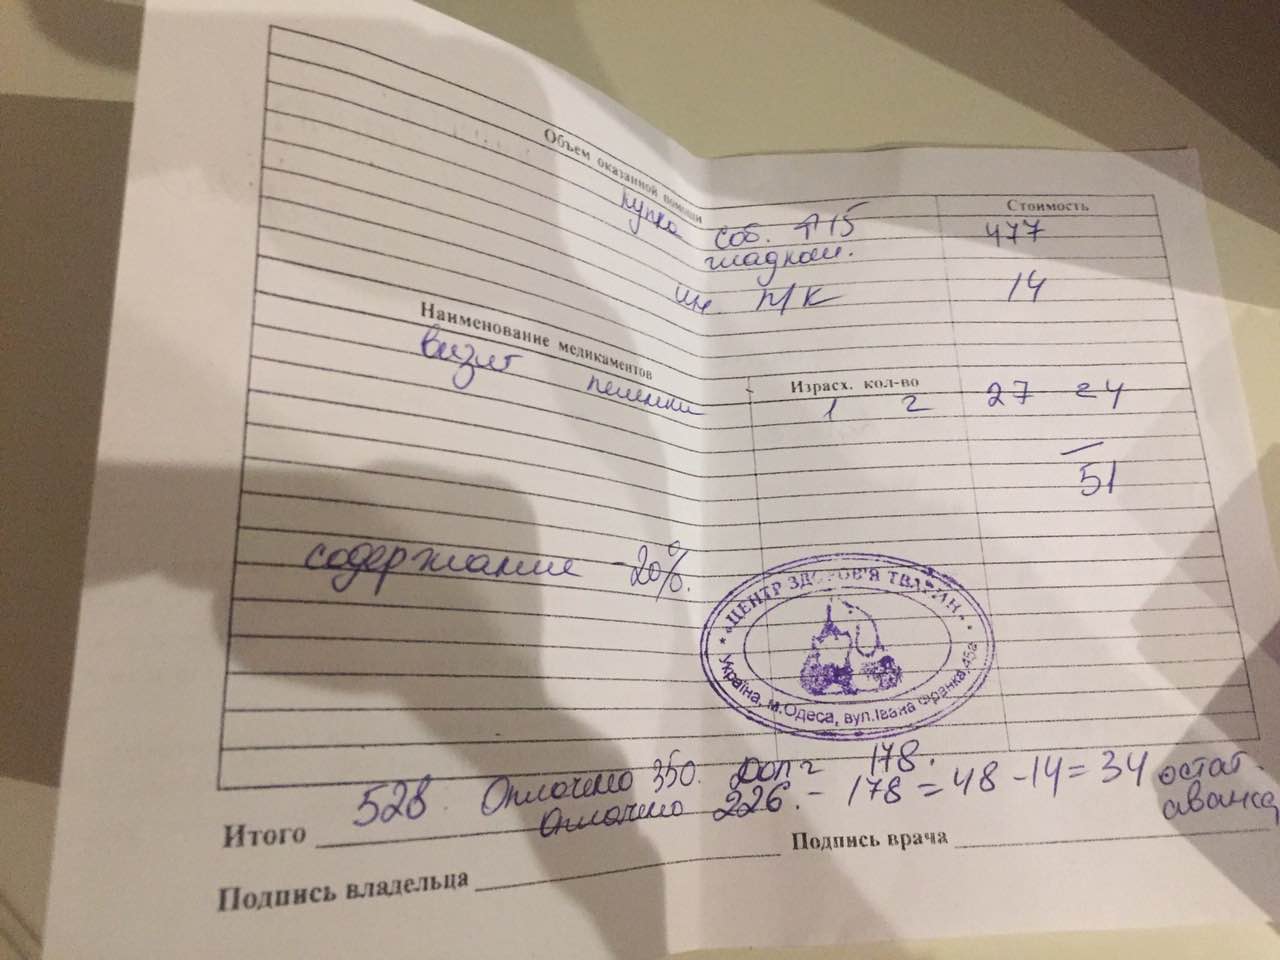 Объем оказанной помощи
Стоимость
купка соб. 15 477
гладкош.
ин п/к 14
Наименование медикаментов
Израсх. кол-во
визит пеленки 1 2 27 24
51
содержание - 20%.
«ЦЕНТР ЗДОРОВ'Я ТВАРИН»
Україна, м.Одеса, вул.Івана Франка,45а
Итого 528. Оплачено 350. Долг 178.
Оплачено 226. - 178 = 48 - 14 = 34 остат.
аванса
Подпись врача
Подпись владельца